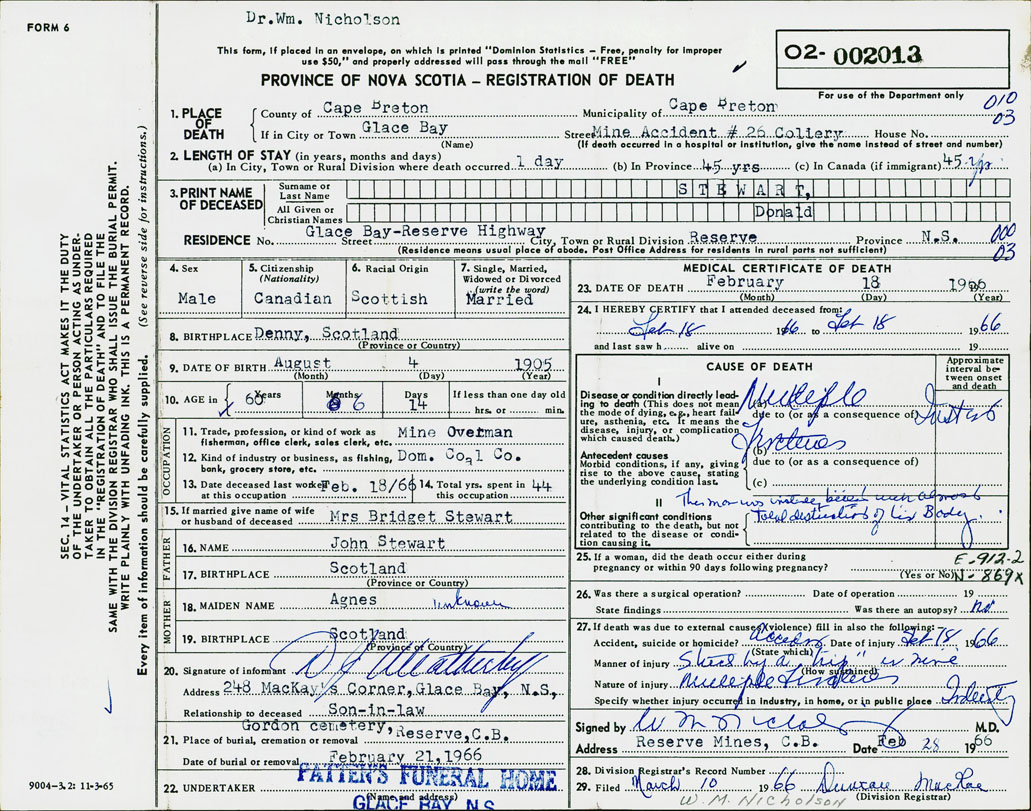 Dr.Wm. Nicholson
FORM 6
This form, if placed in an envelope, on which is printed "Dominion Statistics – Free, penalty for improper
use $50," and properly addressed will pass through the mail "FREE"
PROVINCE OF NOVA SCOTIA – REGISTRATION OF DEATH
02- 002013
For use of the Department only
010
03
1. PLACE OF DEATH
County of Cape Breton Municipality of Cape Breton
If in City or Town Glace Bay Street Mine Accident # 26 Collery House No.
(Name) (If death occurred in a hospital or institution, give the name instead of street and number)
2. LENGTH OF STAY (in years, months and days)
(a) In City, Town or Rural Division where death occurred 1 day (b) In Province 45 yrs (c) In Canada (if immigrant) 45 yrs
3. PRINT NAME OF DECEASED
Surname or Last Name STEWART,
All Given or Christian Names Donald
RESIDENCE No. Glace Bay-Reserve Highway Street City, Town or Rural Division Reserve Province N.S. 000
03
(Residence means usual place of abode. Post Office Address for residents in rural parts not sufficient)
4. Sex Male
5. Citizenship (Nationality) Canadian
6. Racial Origin Scottish
7. Single, Married, Widowed or Divorced (write the word) Married
8. BIRTHPLACE Denny, Scotland
(Province or Country)
9. DATE OF BIRTH August 4 1905
(Month) (Day) (Year)
10. AGE in Years 60 Months 6 Days 14 If less than one day old hrs. or min.
OCCUPATION
11. Trade, profession, or kind of work as fisherman, office clerk, sales clerk, etc. Mine Overman
12. Kind of industry or business, as fishing, bank, grocery store, etc. Dom. Coal Co.
13. Date deceased last worked at this occupation Feb. 18/66
14. Total yrs. spent in this occupation 44
15. If married give name of wife or husband of deceased Mrs Bridget Stewart
FATHER
16. NAME John Stewart
17. BIRTHPLACE Scotland
(Province or Country)
MOTHER
18. MAIDEN NAME Agnes unknown
19. BIRTHPLACE Scotland
(Province or Country)
20. Signature of informant
Address 248 MacKay's Corner, Glace Bay, N.S,
Relationship to deceased Son-in-law
21. Place of burial, cremation or removal Gordon cemetery, Reserve, C.B.
Date of burial or removal February 21,1966
22. UNDERTAKER PATTEN'S FUNERAL HOME
(Name and address)
GLACE BAY N.S.
MEDICAL CERTIFICATE OF DEATH
23. DATE OF DEATH February 18 1966
(Month) (Day) (Year)
24. I HEREBY CERTIFY that I attended deceased from:
Feb 18 1966 to Feb 18 1966
and last saw h alive on 19
CAUSE OF DEATH
Approximate interval between onset and death
I
Disease or condition directly leading to death (This does not mean the mode of dying, e.g., heart failure, asthenia, etc. It means the disease, injury, or complication which caused death.)
(a) Multiple
due to (or as a consequence of)
(b)
Antecedent causes
Morbid conditions, if any, giving rise to the above cause, stating the underlying condition last.
due to (or as a consequence of)
(c)
II
Other significant conditions contributing to the death, but not related to the disease or condition causing it.
This man was instantly killed with almost
total destruction of his Body.
25. If a woman, did the death occur either during pregnancy or within 90 days following pregnancy?
(Yes or No)
E-912-2
N-869X
26. Was there a surgical operation? Date of operation 19
State findings Was there an autopsy? no
27. If death was due to external causes (violence) fill in also the following:
Accident, suicide or homicide? Date of injury Feb 18 1966
(State which)
Manner of injury by a "trip" in mine
(How sustained)
Nature of injury Multiple
Specify whether injury occurred in industry, in home, or in public place Industry
Signed by W M Nicholson M.D.
Address Reserve Mines, C.B. Date Feb 28 1966
28. Division Registrar's Record Number
29. Filed March 10 1966 Duncan MacRae
W. M. NICHOLSON (Division Registrar)
SEC. 14 – VITAL STATISTICS ACT MAKES IT THE DUTY
OF THE UNDERTAKER OR PERSON ACTING AS UNDER-
TAKER TO OBTAIN ALL THE PARTICULARS REQUIRED
IN THE "REGISTRATION OF DEATH" AND TO FILE THE
SAME WITH THE DIVISION REGISTRAR WHO SHALL ISSUE THE BURIAL PERMIT.
WRITE PLAINLY WITH UNFADING INK. THIS IS A PERMANENT RECORD.
Every item of information should be carefully supplied. (See reverse side for instructions.)
9004–3.21 11-3-65